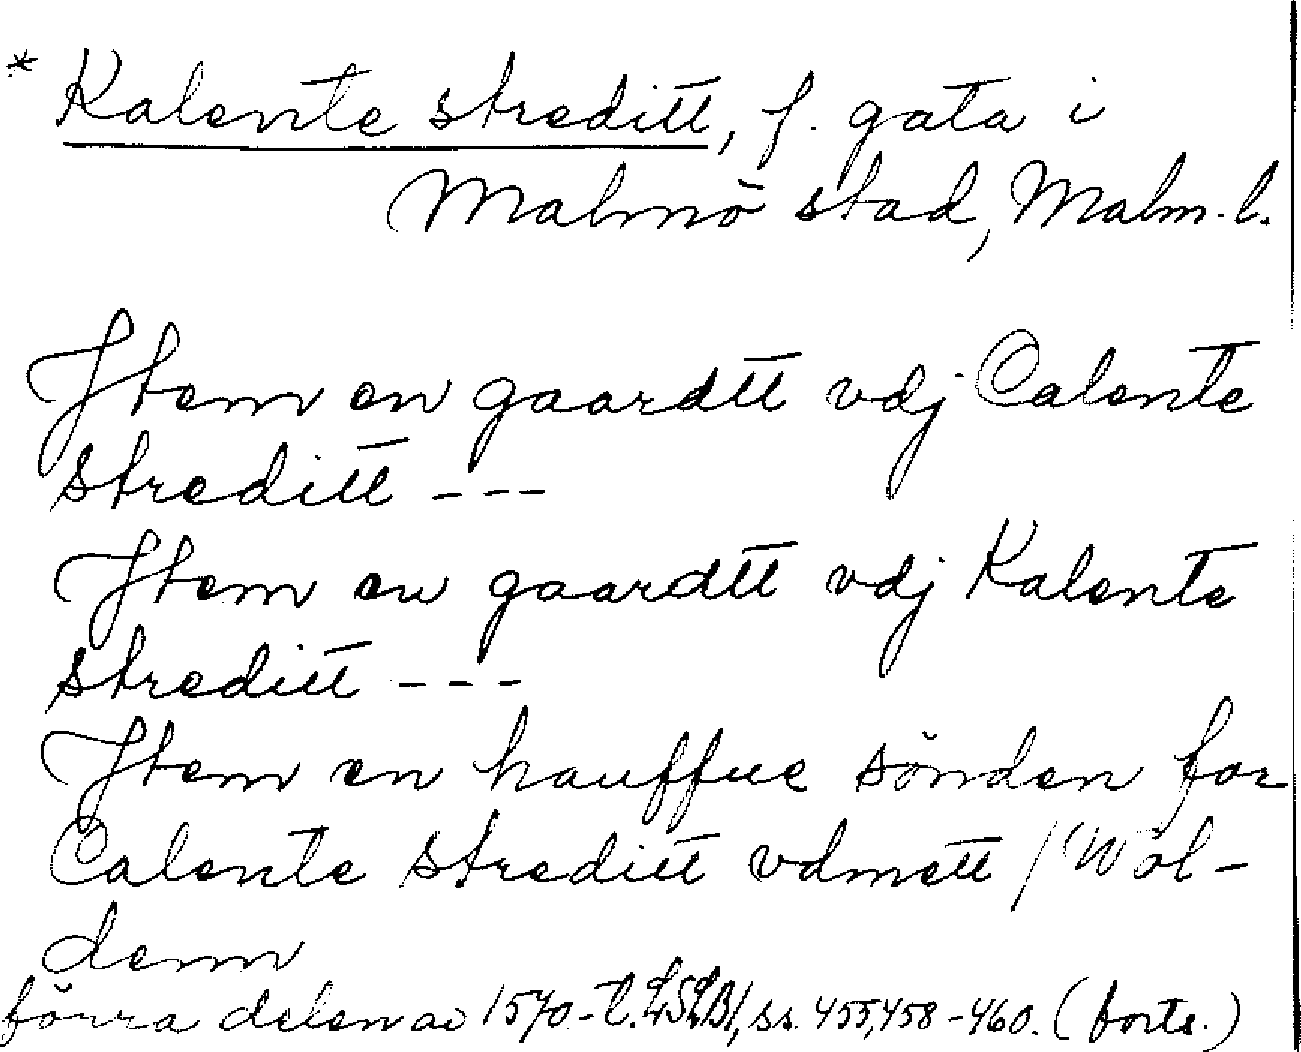 * Kalente streditt, f. gata i
Malmö stad, Malm. l.
Jtem en gaardtt vdj Calente
streditt ---
Jtem en gaardtt vdj Kalente
streditt ---
Jtem en hauffue sönden for
Calente streditt vdmett / Wol-
denn
förra delen av 1570-t. LSLB1, ss. 455, 458-460. (forts.)